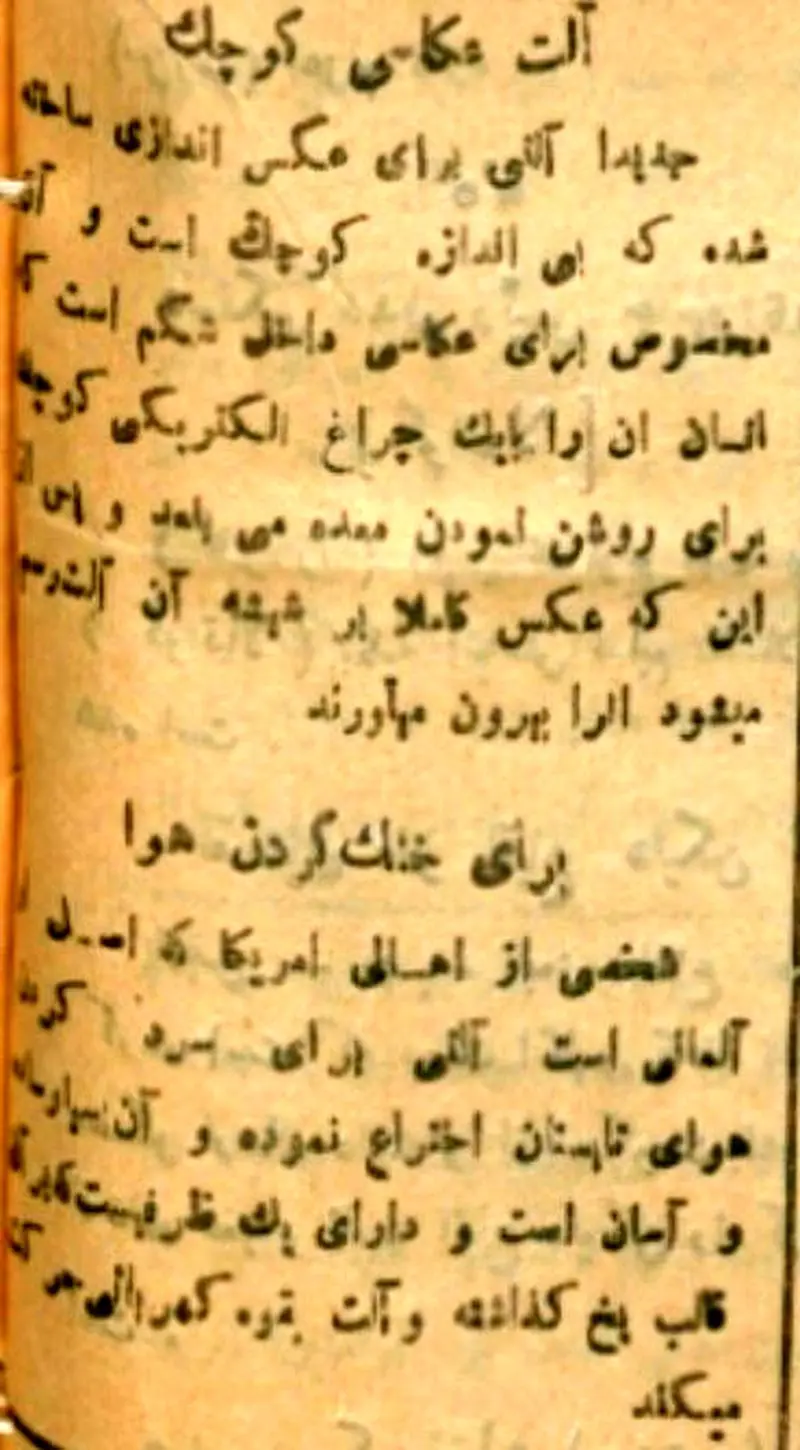 آلت عکاسی کوچك
جدیدا آلتی برای عکس اندازی ساخته
شده که بی اندازه کوچك است و آنهم
مخصوص برای عکاسی داخل شکم است که
انسان ان را بایك چراغ الکتریکی کوچك
برای روشن نمودن معده می بلعد و پس از
این که عکس کاملا بر شیشه آن آلت رسم
میشود انرا بیرون میآورند
برای خنك کردن هوا
شخصی از اهالی امریکا که اصل
آلمانی است آلتی برای سرد کردن
هوای تابستان اختراع نموده و آن بسیار ساده
و آسان است و دارای یك ظرفیست که بر
قالب یخ گذاشته و آلت بقوه کهربائی حر
میکند